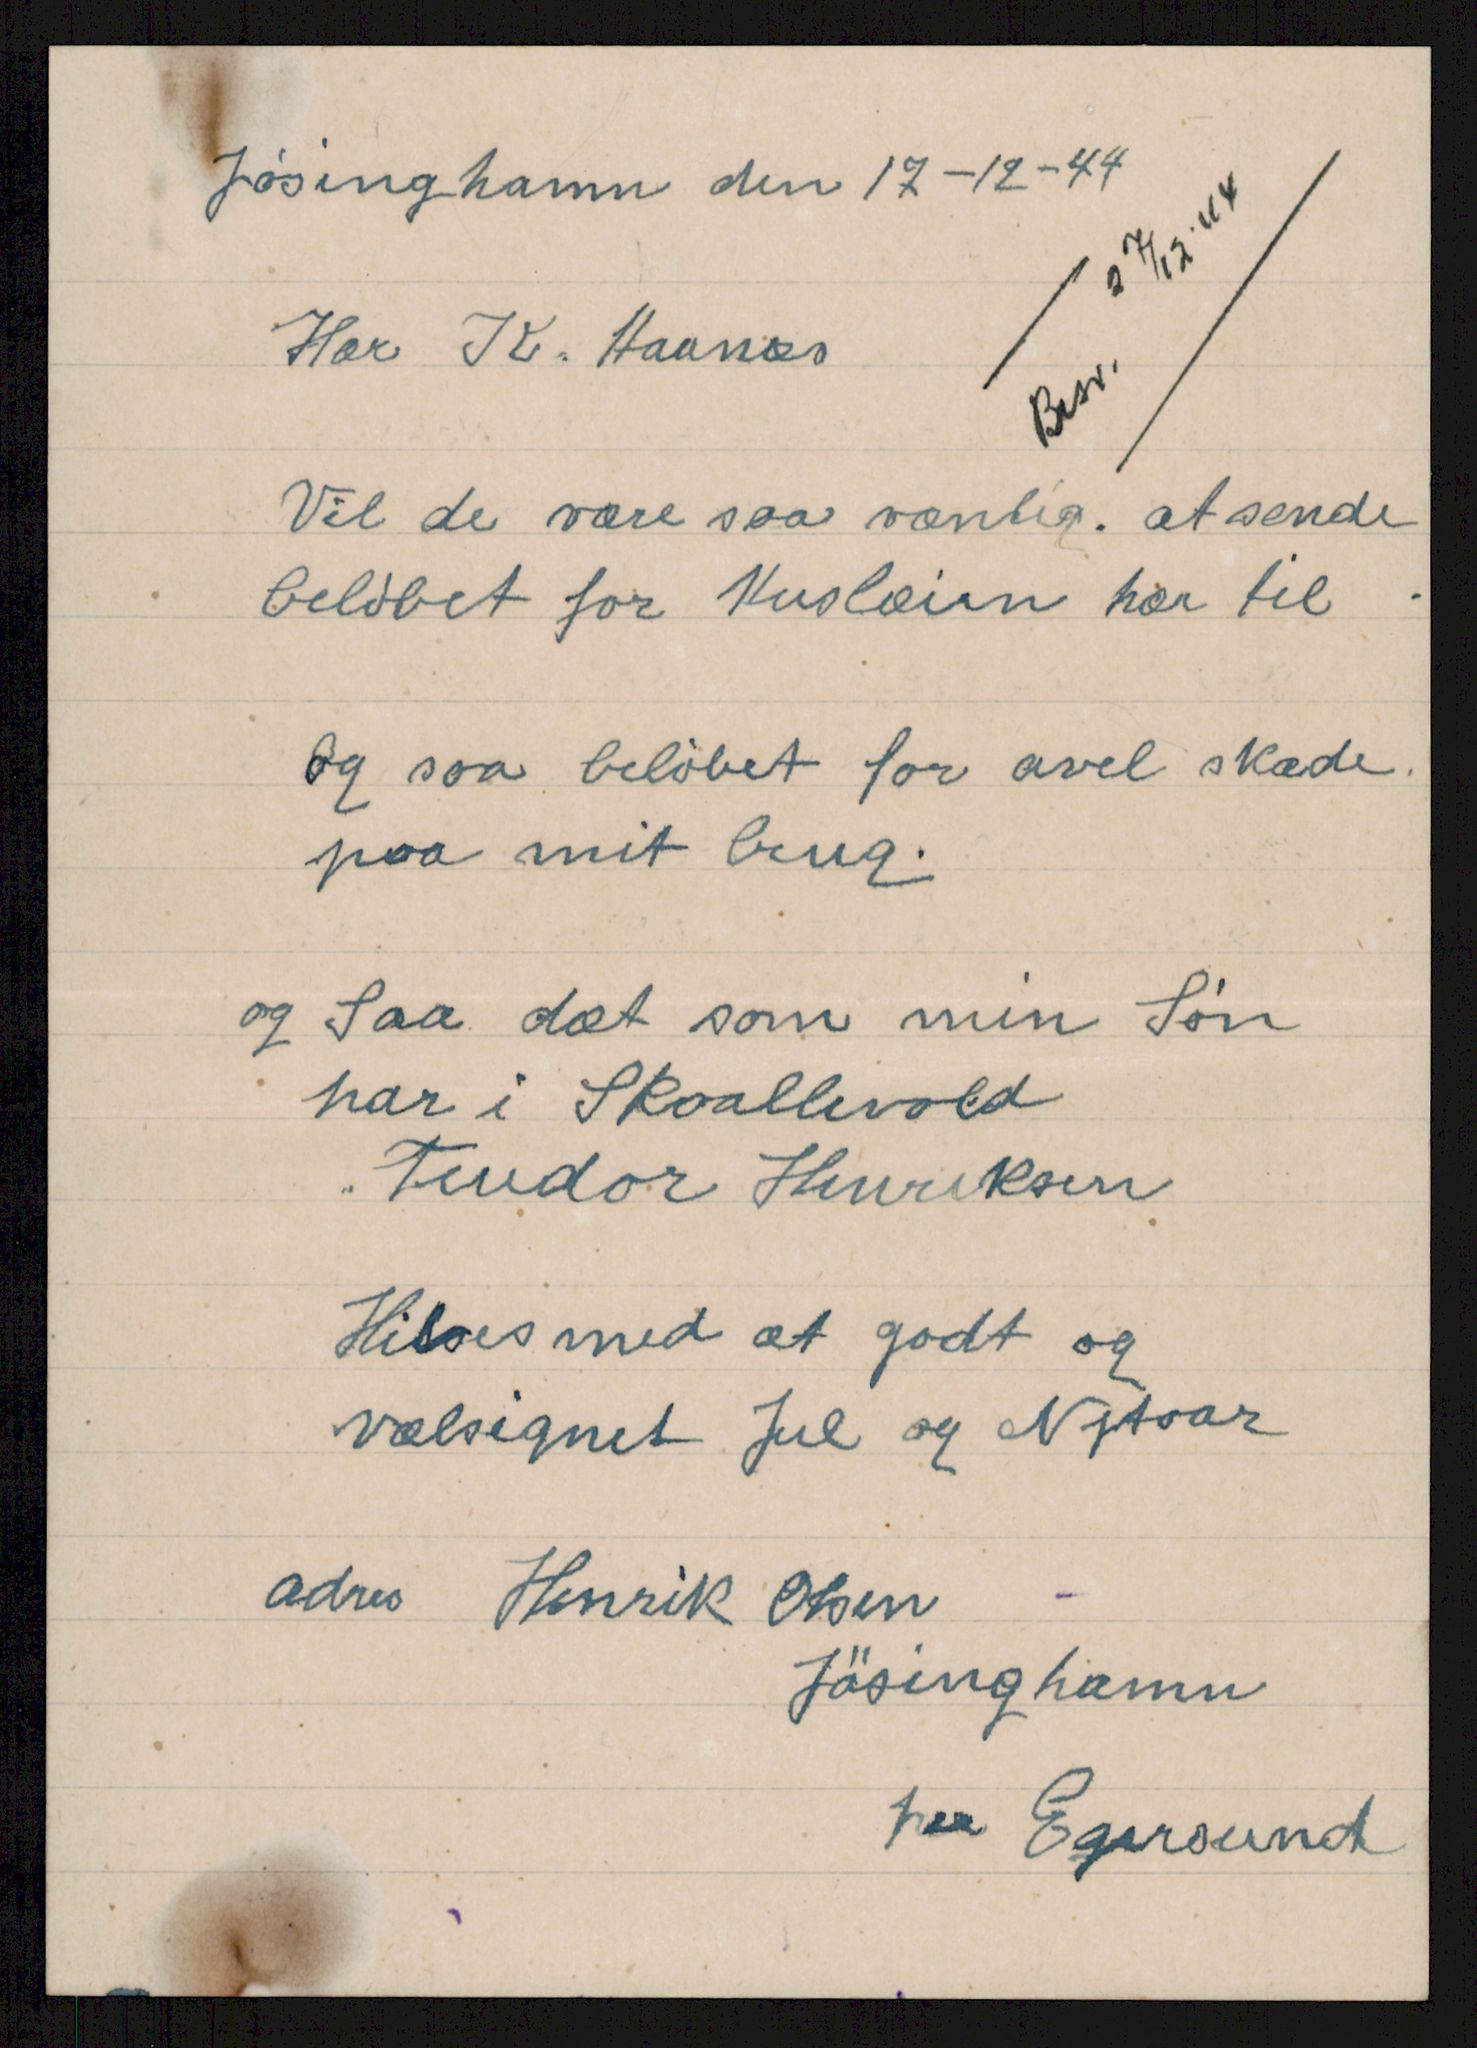 Jösinghamn den 17-12-44
Besv. 27/12.44
Hær K. Haanæs
Vil de være saa vænlig. at sænde
belöbet for Huslæien hær til
og saa belöbet for avel skade.
paa mit brug.
og Saa dæt som min Sön
har i Skoallevold
Teudor Henriksen
Hilses med æt godt og
vælsignet Jul og Nytaar
adres Henrik Olsen
Jösinghamn
per Egersund